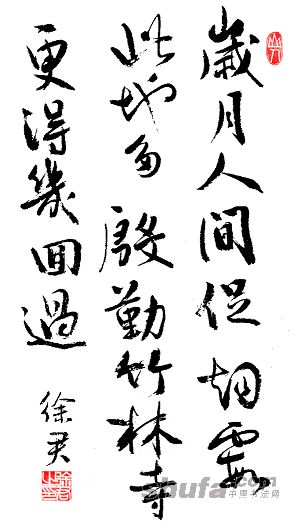 歲月人間促烟霞
此地多殷勤竹林寺
更得幾囬過
徐君
shufa.com
中国书法网